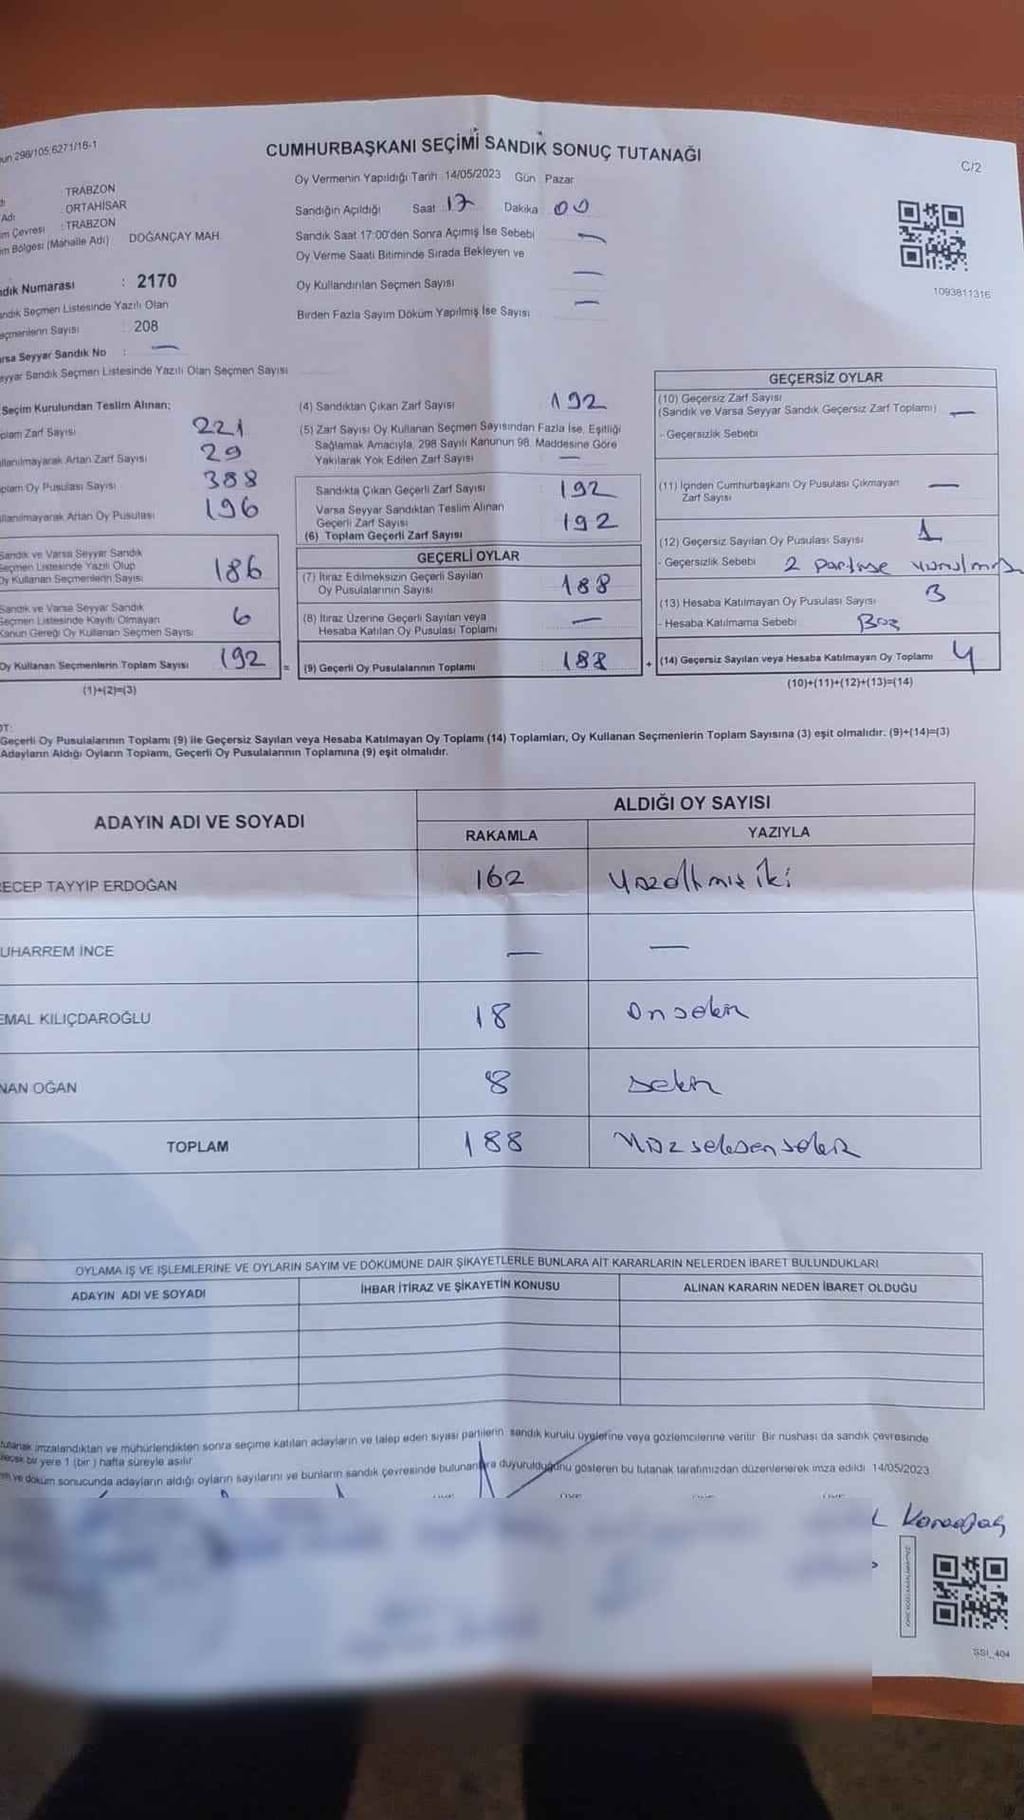 298/105,6271/16-1
CUMHURBAŞKANI SEÇİMİ SANDIK SONUÇ TUTANAĞI
C/2
Oy Vermenin Yapıldığı Tarih 14/05/2023 Gün Pazar
TRABZON
Adı ORTAHİSAR
im Çevresi : TRABZON
im Bölgesi (Mahalle Adı) DOĞANÇAY MAH.
Sandığın Açıldığı Saat 17 Dakika 00
Sandık Saat 17:00'den Sonra Açımış İse Sebebi —
Oy Verme Saati Bitiminde Sırada Bekleyen ve
Oy Kullandırılan Seçmen Sayısı —
Birden Fazla Sayım Döküm Yapılmış İse Sayısı —
1093811316
ndık Numarası : 2170
andık Seçmen Listesinde Yazılı Olan
eçmenlerin Sayısı : 208
arsa Seyyar Sandık No : —
eyyar Sandık Seçmen Listesinde Yazılı Olan Seçmen Sayısı
Seçim Kurulundan Teslim Alınan;
plam Zarf Sayısı 221
llanılmayarak Artan Zarf Sayısı 29
plam Oy Pusulası Sayısı 388
llanılmayarak Artan Oy Pusulası 196
Sandık ve Varsa Seyyar Sandık
Seçmen Listesinde Yazılı Olup
Oy Kullanan Seçmenlerin Sayısı 186
Sandık ve Varsa Seyyar Sandık
Seçmen Listesinde Kayıtlı Olmayan
Kanun Gereği Oy Kullanan Seçmen Sayısı 6
Oy Kullanan Seçmenlerin Toplam Sayısı 192 =
(1)+(2)=(3)
(4) Sandıktan Çıkan Zarf Sayısı 192
(5) Zarf Sayısı Oy Kullanan Seçmen Sayısından Fazla İse, Eşitliği
Sağlamak Amacıyla, 298 Sayılı Kanunun 98. Maddesine Göre
Yakılarak Yok Edilen Zarf Sayısı —
Sandıkta Çıkan Geçerli Zarf Sayısı 192
Varsa Seyyar Sandıktan Teslim Alınan
Geçerli Zarf Sayısı
(6) Toplam Geçerli Zarf Sayısı 192
GEÇERLİ OYLAR
(7) İtiraz Edilmeksizin Geçerli Sayılan
Oy Pusulalarının Sayısı 188
(8) İtiraz Üzerine Geçerli Sayılan veya
Hesaba Katılan Oy Pusulası Toplamı —
(9) Geçerli Oy Pusulalarının Toplamı 188 +
GEÇERSİZ OYLAR
(10) Geçersiz Zarf Sayısı
(Sandık ve Varsa Seyyar Sandık Geçersiz Zarf Toplamı) —
- Geçersizlik Sebebi
(11) İçinden Cumhurbaşkanı Oy Pusulası Çıkmayan
Zarf Sayısı —
(12) Geçersiz Sayılan Oy Pusulası Sayısı 1
- Geçersizlik Sebebi 2 partiye vurulmuş
(13) Hesaba Katılmayan Oy Pusulası Sayısı 3
- Hesaba Katılmama Sebebi Boş
(14) Geçersiz Sayılan veya Hesaba Katılmayan Oy Toplamı 4
(10)+(11)+(12)+(13)=(14)
OT:
Geçerli Oy Pusulalarının Toplamı (9) ile Geçersiz Sayılan veya Hesaba Katılmayan Oy Toplamı (14) Toplamları, Oy Kullanan Seçmenlerin Toplam Sayısına (3) eşit olmalıdır. (9)+(14)=(3)
Adayların Aldığı Oyların Toplamı, Geçerli Oy Pusulalarının Toplamına (9) eşit olmalıdır.
ADAYIN ADI VE SOYADI
ALDIĞI OY SAYISI
RAKAMLA YAZIYLA
RECEP TAYYİP ERDOĞAN 162 Yüzaltmış iki
UHARREM İNCE — —
EMAL KILIÇDAROĞLU 18 Onsekiz
NAN OĞAN 8 Sekiz
TOPLAM 188 Yüzseksensekiz
OYLAMA İŞ VE İŞLEMLERİNE VE OYLARIN SAYIM VE DÖKÜMÜNE DAİR ŞİKAYETLERLE BUNLARA AİT KARARLARIN NELERDEN İBARET BULUNDUKLARI
ADAYIN ADI VE SOYADI İHBAR İTİRAZ VE ŞİKAYETİN KONUSU ALINAN KARARIN NEDEN İBARET OLDUĞU
tutanak imzalandıktan ve mühürlendikten sonra seçime katılan adayların ve talep eden siyasi partilerin sandık kurulu üyelerine veya gözlemcilerine verilir. Bir nüshası da sandık çevresinde
bir yere 1 (bir ) hafta süreyle asılır.
ve döküm sonucunda adayların aldığı oyların sayılarını ve bunların sandık çevresinde bulunanlara duyurulduğunu gösteren bu tutanak tarafımızdan düzenlenerek imza edildi. 14/05/2023
SSI_404